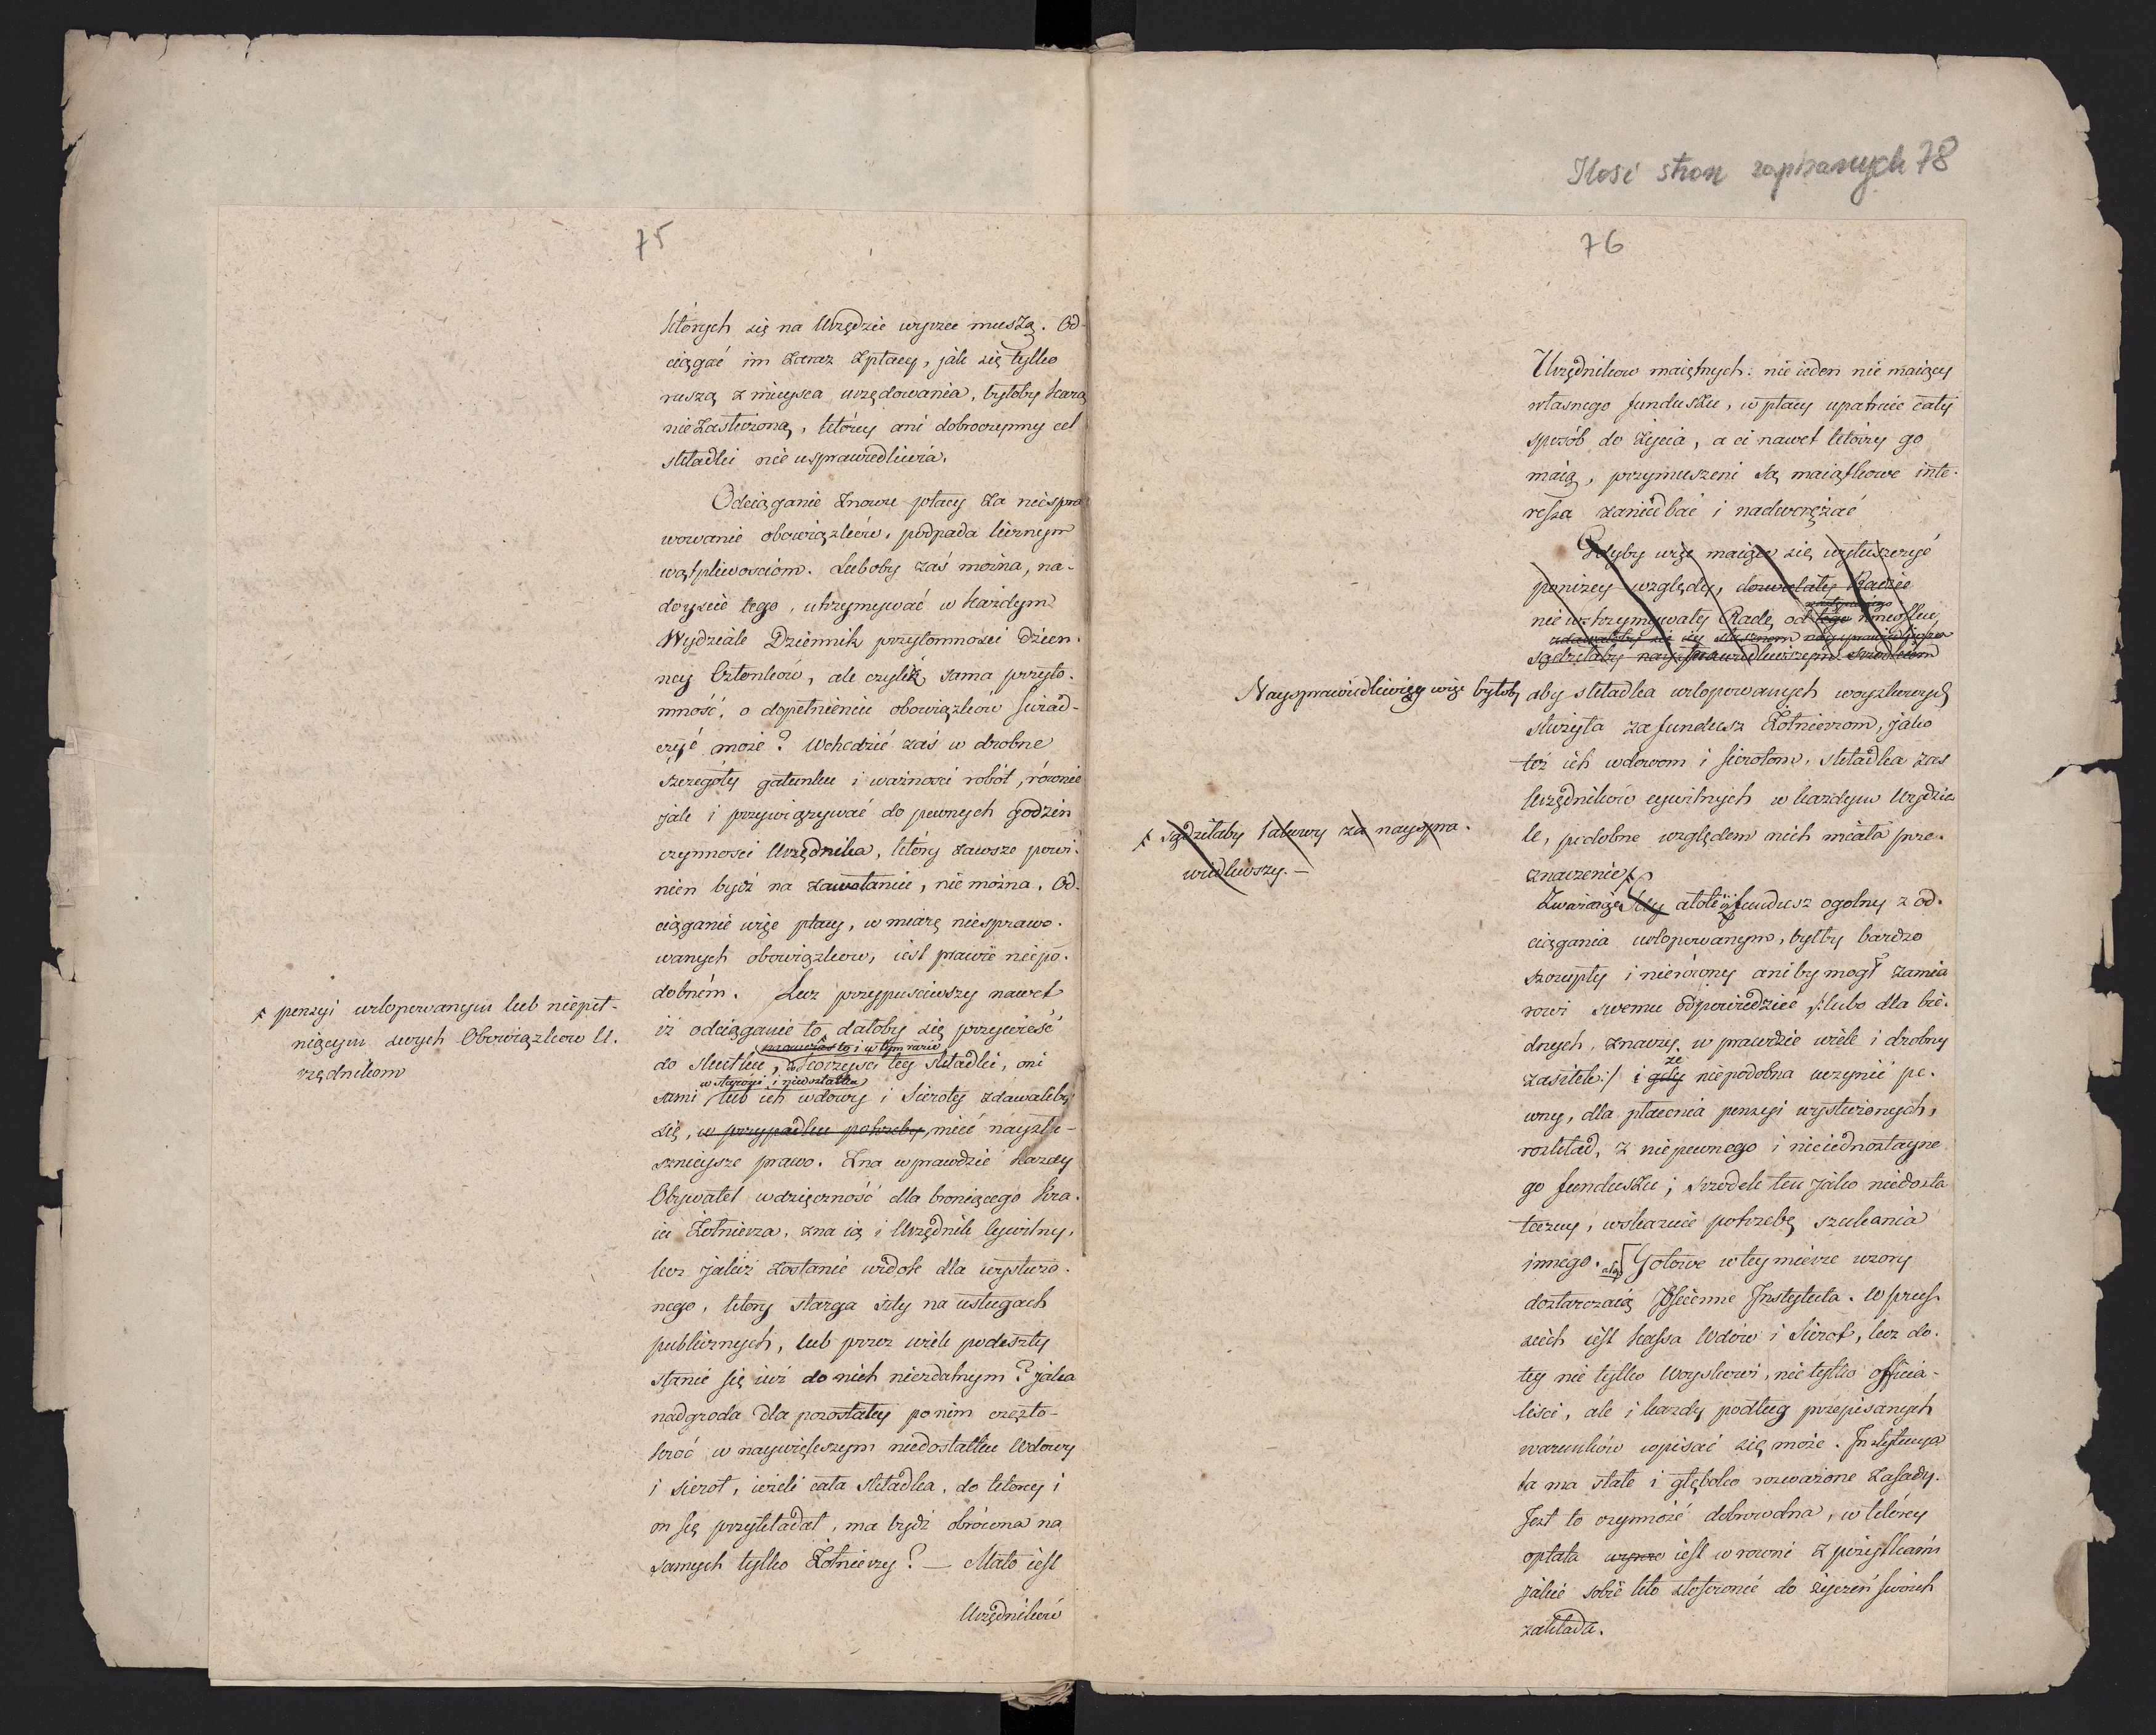 Ilość stron zapisanych 78
75
których się na Urzędzie wyrzec muszą. Od-
ciągać im zaraz z płacy, jak się tylko
ruszą z mieysca urzędowania, byłoby karą
niezasłużoną, którey ani dobroczynny cel
składki nie usprawiedliwia.
Odciąganie znowu płacy za niespra-
wowanie obowiązków, podpada licznym
wątpliwościom. Luboby zaś można, na-
doyście tego, utrzymywać w każdym
Wydziale Dziennik przytomności dzien-
ney Członków, ale czyliż, sama przyto-
mność, o dopełnieniu obowiązków świad-
czyć może? Wchodzić zaś w drobne
szczegóły gatunku i ważności robót, równie
jak i przywiązywać do pewnych godzin
czynności Urzędnika, który zawsze powi-
nien bydź na zawołanie, nie można. Od-
ciąganie więc płacy, w miarę niesprawo-
wanych obowiązków, iest prawie niepo-
dobném. Lecz przypuściwszy nawet
+ pensyi urlopowanym lub niepeł-
niącym swych Obowiązkow U-
rzędnikom
iż odciąganie to, dałoby się przywieść
i w tym razie
do skutku, do korzyści tey składki, oni
w starości i niedostatku
sami lub ich wdowy i Sieroty zdawaliby
się, w przypadku potrzeby, mieć naysłu-
sznieysze prawo. Zna wprawdzie każdy
Obywatel wdzięczność dla broniącego Kra-
iu Żołnierza, zna ią i Urzędnik Cywilny,
lecz jakiż zostanie widok dla wysłużo-
nego, który starga siły na usługach
publicznych, lub przez wiek podeszły
stanie się iuż do nich niezdatnym? jaka
nadgroda dla pozostałey po nim często-
kroć w naywiększym niedostatku Wdowy
i sierot, ieżeli cała składka, do którey i
on się przykładał, ma bydź obrócona na
samych tylko Żołnierzy? — Mało iest
Urzędników
76
Urzędnikow maiętnych: nie ieden nie maiący
własnego funduszu, w płacy upatruie cały
sposób do życia, a ci nawet którzy go
maią, przymuszeni są maiątkowe inte-
ressa zaniedbać i nadwerężać
Gdyby więc maiące się wyłuszczyć
poniżey względy, dozwalały Radzie
nie wstrzymywały Radę, od tego wniosku,
sądziłaby naysprawiedliwszym środkiem
Naysprawiedliwiey więc byłoby aby składka urlopowanych woyskowych
służyła za fundusz Żołnierzom, jako
też ich wdowom i sierotom, składka zas
Urzędnikow cywilnych w każdym Wydzia-
le, podobne względem nich miała prze-
znaczenie
+ Sądziłaby takowy za nayspra-
wiedliwszy. —
Zwaziąc Gdy atoli iż fundusz ogolny z od-
ciągania urlopowanym, byłby bardzo
szczupły i nierówny aniby mogł zamia
rowi swemu odpowiedzieć /: lubo dla bie-
dnych, znaczy w prawdzie wiele i drobny
że
zasiłek :/ i gdy niepodobna uczynić pe-
wny, dla płacenia pensyi wysłużonych,
rozkład, z niepewnego i nieiednostayne
go funduszu; srzodek ten jako niedosta
teczny, wskazuie potrzebę szukania
innego. Gotowe w tey mierze wzory
dostarczaią Ościenne Instytuta. W Prus-
siech iest Kassa Wdów i Sierot, lecz do
tey nie tylko Woyskowi, nie tylko officia-
liści, ale i każdy podług przepisanych
warunków wpisać się może. Instytucya
ta ma stałe i głęboko rozważone zasady.
Jest to czynność dobrowolna, w którey
opłata iest w rowni z pożytkami
jakie sobie kto stosownie do życzeń swoich
zakłada.